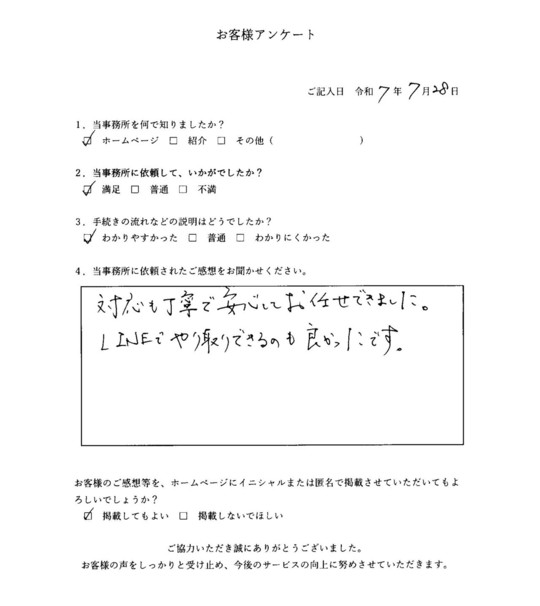 お客様アンケート
ご記入日 令和 7 年 7 月 28 日
1．当事務所を何で知りましたか？
☑ ホームページ □ 紹介 □ その他（ ）
2．当事務所に依頼して、いかがでしたか？
☑ 満足 □ 普通 □ 不満
3．手続きの流れなどの説明はどうでしたか？
☑ わかりやすかった □ 普通 □ わかりにくかった
4．当事務所に依頼されたご感想をお聞かせください。
対応も丁寧で安心してお任せできました。
LINEでやり取りできるのも良かったです。
お客様のご感想等を、ホームページにイニシャルまたは匿名で掲載させていただいてもよ
ろしいでしょうか？
☑ 掲載してもよい □ 掲載しないでほしい
ご協力いただき誠にありがとうございました。
お客様の声をしっかりと受け止め、今後のサービスの向上に努めさせていただきます。